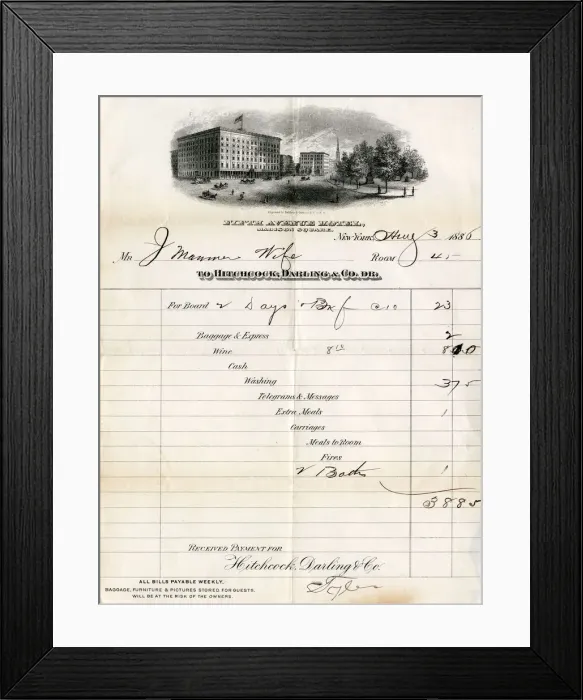 FIFTH AVENUE HOTEL,
MADISON SQUARE.
New York, Aug 3 1886
Mr J Manner Wife Room 41-
TO HITCHCOCK, DARLING & CO. DR.
For Board 2 Days Bkf @10 23
Baggage & Express 2
Wine 8
Cash
Washing 375
Telegrams & Messages
Extra Meals 1
Carriages
Meals to Room
Fires
2 Baths 1
3885
RECEIVED PAYMENT FOR
Hitchcock, Darling & Co.
Tyler
ALL BILLS PAYABLE WEEKLY.
BAGGAGE, FURNITURE & PICTURES STORED FOR GUESTS,
WILL BE AT THE RISK OF THE OWNERS.